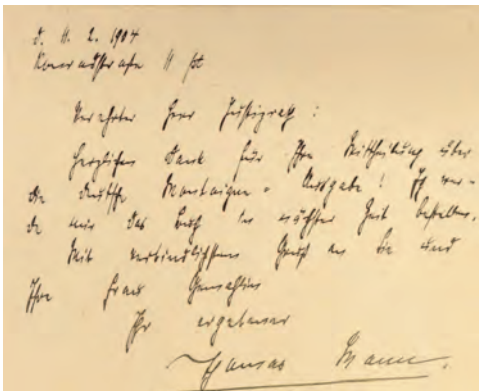 d. 11. 2. 1904
Konradstraße 11 pt
Verehrter Herr Justizrath:
Herzlichen Dank für Ihre Mittheilung über
die deutsche Montaigne-Ausgabe! Ich wer-
de mir das Buch in nächster Zeit bestellen.
Mit verbindlichstem Gruß an Sie und
Ihre Frau Gemahlin
Ihr ergebener
Thomas Mann.